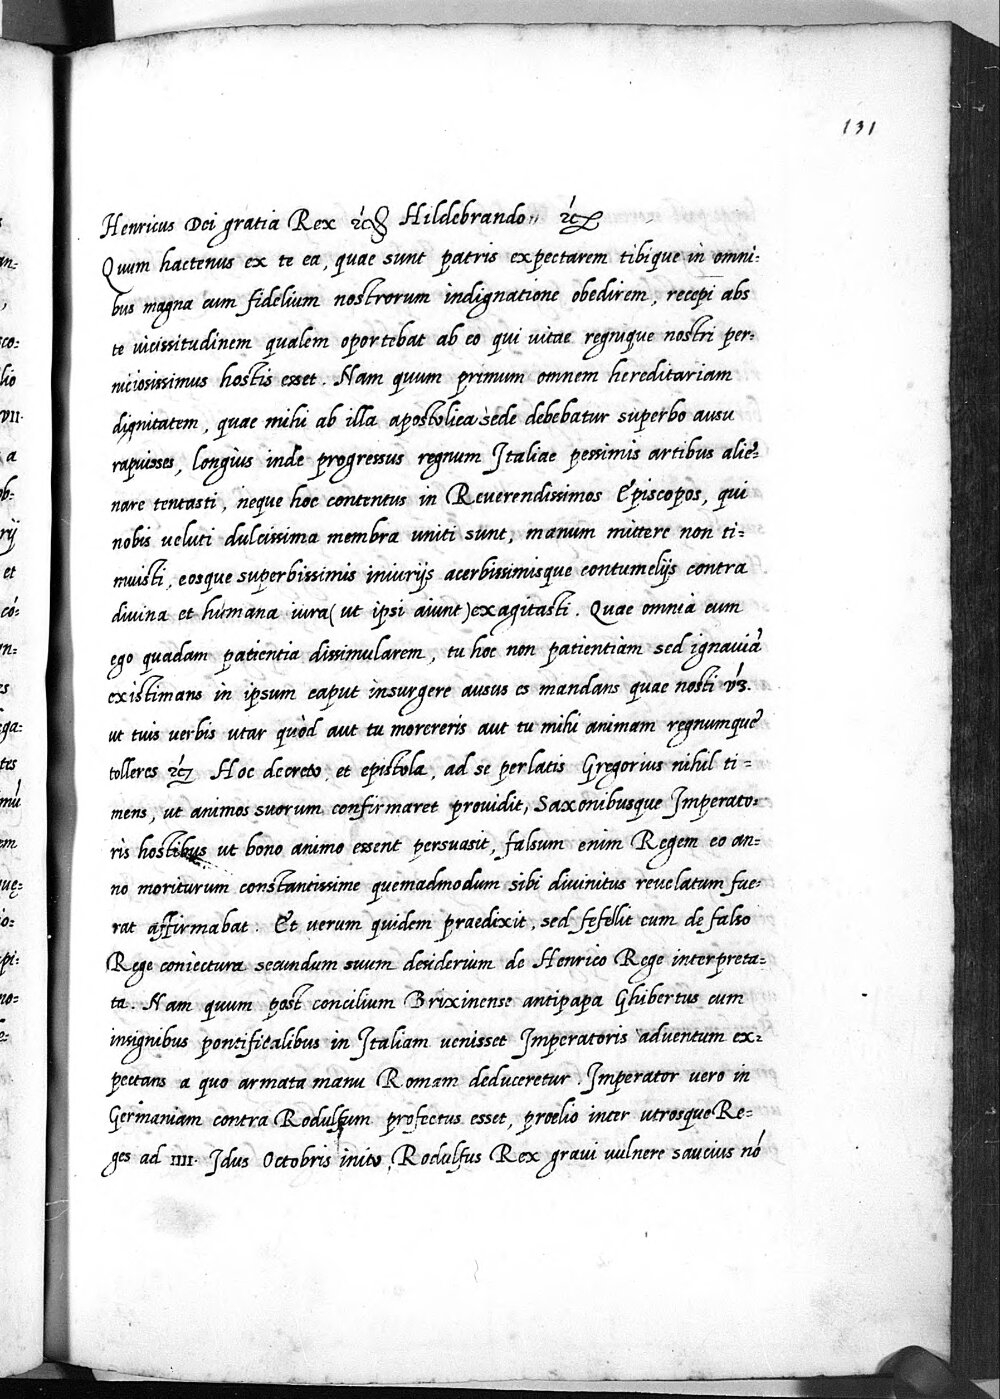 131
Henricus Dei gratia Rex &c Hildebrando &c
Quum hactenus ex te ea, quae sunt patris expectarem tibique in omni-
bus magna cum fidelium nostrorum indignatione obedirem, recepi abs
te vicissitudinem qualem oportebat ab eo qui vitae regnique nostri per-
niciosissimus hostis esset. Nam quum primum omnem hereditariam
dignitatem, quae mihi ab illa apostolica sede debebatur superbo ausu
rapuisses, longius inde progressus regnum Italiae pessimis artibus alie-
nare tentasti, neque hoc contentus in Reverendissimos Episcopos, qui
nobis veluti dulcissima membra uniti sunt, manum mittere non ti-
muisti, eosque superbissimis iniurijs acerbissimisque contumelijs contra
divina et humana iura (ut ipsi aiunt) exagitasti. Quae omnia cum
ego quadam patientia dissimularem, tu hoc non patientiam sed ignaviā
existimans in ipsum caput insurgere ausus es mandans quae nosti
ut tuis verbis utar quòd aut tu morereris aut tu mihi animam regnumque
tolleres &c Hoc decreto, et epistola, ad se perlatis Gregorius nihil ti-
mens, ut animos suorum confirmaret providit, Saxonibusque Imperato-
ris hostibus ut bono animo essent persuasit, falsum enim Regem eo an-
no moriturum constantissime quemadmodum sibi divinitus revelatum fue-
rat affirmabat. Et verum quidem praedixit, sed fefellit eum de falso
Rege coniectura secundum suum desiderium de Henrico Rege interpreta-
ta. Nam quum post concilium Brixinense antipapa Ghibertus cum
insignibus pontificalibus in Italiam venisset Imperatoris adventum ex-
pectans a quo armata manu Romam deduceretur. Imperator vero in
Germaniam contra Rodulfum profectus esset, proelio inter utrosque Re-
ges ad IIII. Idus Octobris inito, Rodulfus Rex gravi vulnere saucius nō